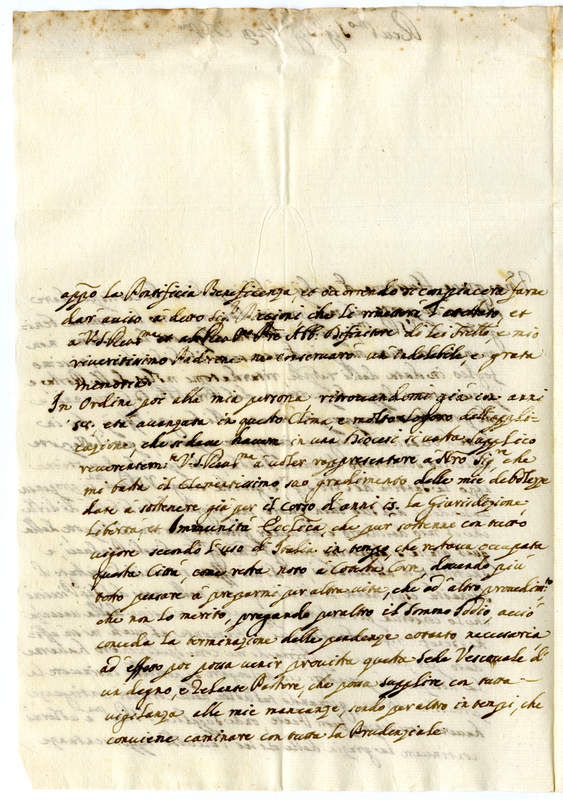 appo la Pontificia Beneficenza, et occorrendo si compiacerà farne
dar auiso a detto Sig.r che li rimetterà l' et
a V. S. Reu.ma et al Reu.mo P're Abb. Difinitore di Lei fratello, e mio
riueritissimo Padrone ne conseruarò un' indelebile e grata
memoria.
In Ordine poi alla mia persona ritrouandomi già con anni
età auanzata in questo Clima, e molto dall' appli-
cazione, che si deue hauere in una Diocesi si uasta, supplico
reuerentem.te V. S. Reu.ma a uoler rappresentare a N'ro Sig.re che
mi basta il Clementissimo suo gradimento delle mie debolezze
date a sostenere già per il corso d' anni la Giurisdizione,
Libertà, et Immunità Eccl'ica, che pur sostenne con tutto
uigore secondo l' uso d' Italia in tempo che restaua occupata
questa Città, come resta noto à cotesta Corte, douendo più
tosto pensare a prepararmi per altra uita, che ad' altro prouedim.to
che non lo merito, pregando per altro il Sommo Iddio, acciò
conceda la terminazione delle pendenze cotanto necessaria
ad' effetto poi possa uenir prouista questa Sede Vescouale di
un degno, e Zelante Pastore, che possa supplire con tutta
uigilanza alle mie mancanze, sendo per altro in tempi, che
conuiene caminare con tutta la Prudenziale